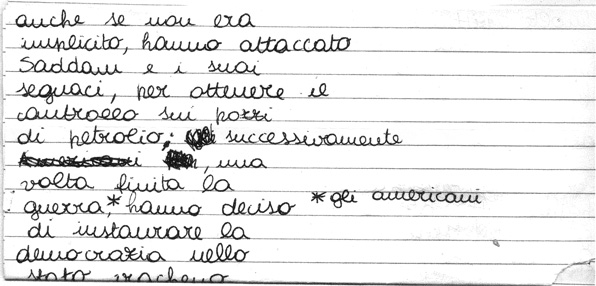 anche se non era
implicito, hanno attaccato
Saddam e i suoi
seguaci, per ottenere il
controllo sui pozzi
di petrolio; successivamente
, una
volta finita la
guerra,* hanno deciso *gli americani
di instaurare la
democrazia nello
stato iracheno